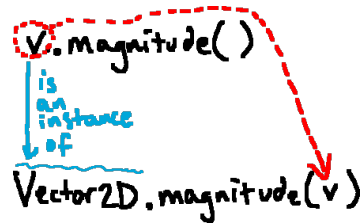 v.magnitude()
is
an
instance
of
Vector2D.magnitude(v)